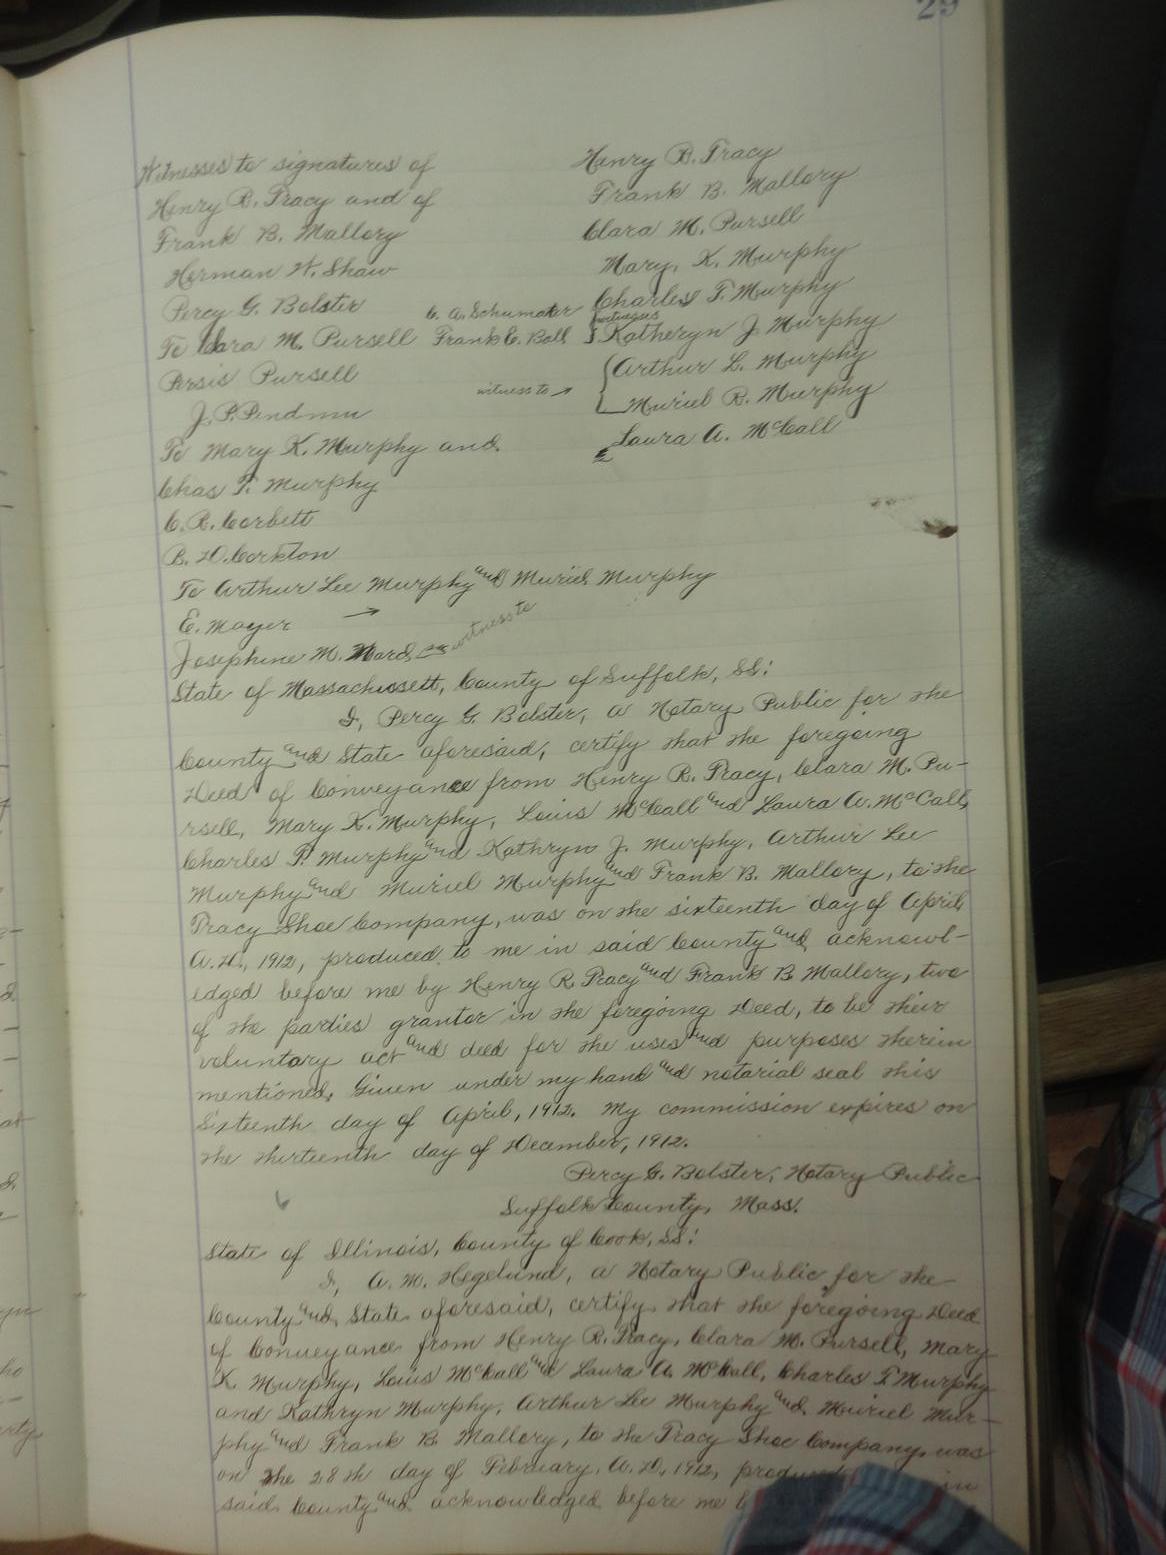 29
Witnesses to signatures of
Henry R. Tracy and of
Frank B. Mallory
Herman W. Shaw
Percy G. Bolster
To Clara M. Pursell
Persis Pursell
J. P.
To Mary K. Murphy and
Chas T. Murphy
C. R. Corbett
B. D. Corkton
To Arthur Lee Murphy and Muriel Murphy
E. Mayer →
Josephine M. Ward witness to
Henry R. Tracy
Frank B. Mallory
Clara M. Pursell
Mary. K. Murphy
Charles T. Murphy
C. A. Schumater witnesses
Frank C. Ball } Katheryn J. Murphy
Arthur L. Murphy
witness to → { Muriel R. Murphy
Laura A. McCall
State of Massachusett, County of Suffolk, SS:
I, Percy G. Bolster, a Notary Public for the
County and State aforesaid, certify that the foregoing
Deed of Conveyance from Henry R. Tracy, Clara M. Pu-
rsell, Mary K. Murphy, Louis McCall and Laura A. McCall,
Charles T. Murphy and Kathryn J. Murphy, Arthur Lee
Murphy and Muriel Murphy and Frank B. Mallory, to the
Tracy Shoe Company, was on the sixteenth day of April
A.D., 1912, produced to me in said County and acknowl-
edged before me by Henry R. Tracy and Frank B. Mallory, two
of the parties grantor in the foregoing Deed, to be their
voluntary act and deed for the uses and purposes therein
mentioned, Given under my hand and notarial seal this
Sixteenth day of April, 1912. My commission expires on
the thirteenth day of December, 1912.
Percy G. Bolster, Notary Public
Suffolk County, Mass.
State of Illinois, County of Cook, SS:
I, A. M. Hegelund, a Notary Public for the
County and State aforesaid, certify that the foregoing Deed
of Conveyance from Henry R. Tracy, Clara M. Pursell, Mary
K. Murphy, Louis McCall and Laura A. McCall, Charles T Murphy
and Kathryn Murphy, Arthur Lee Murphy and Muriel Mur-
phy and Frank B. Mallory, to the Tracy Shoe Company, was
on the 28th day of February, A.D., 1912, produced in
said County and acknowledged before me